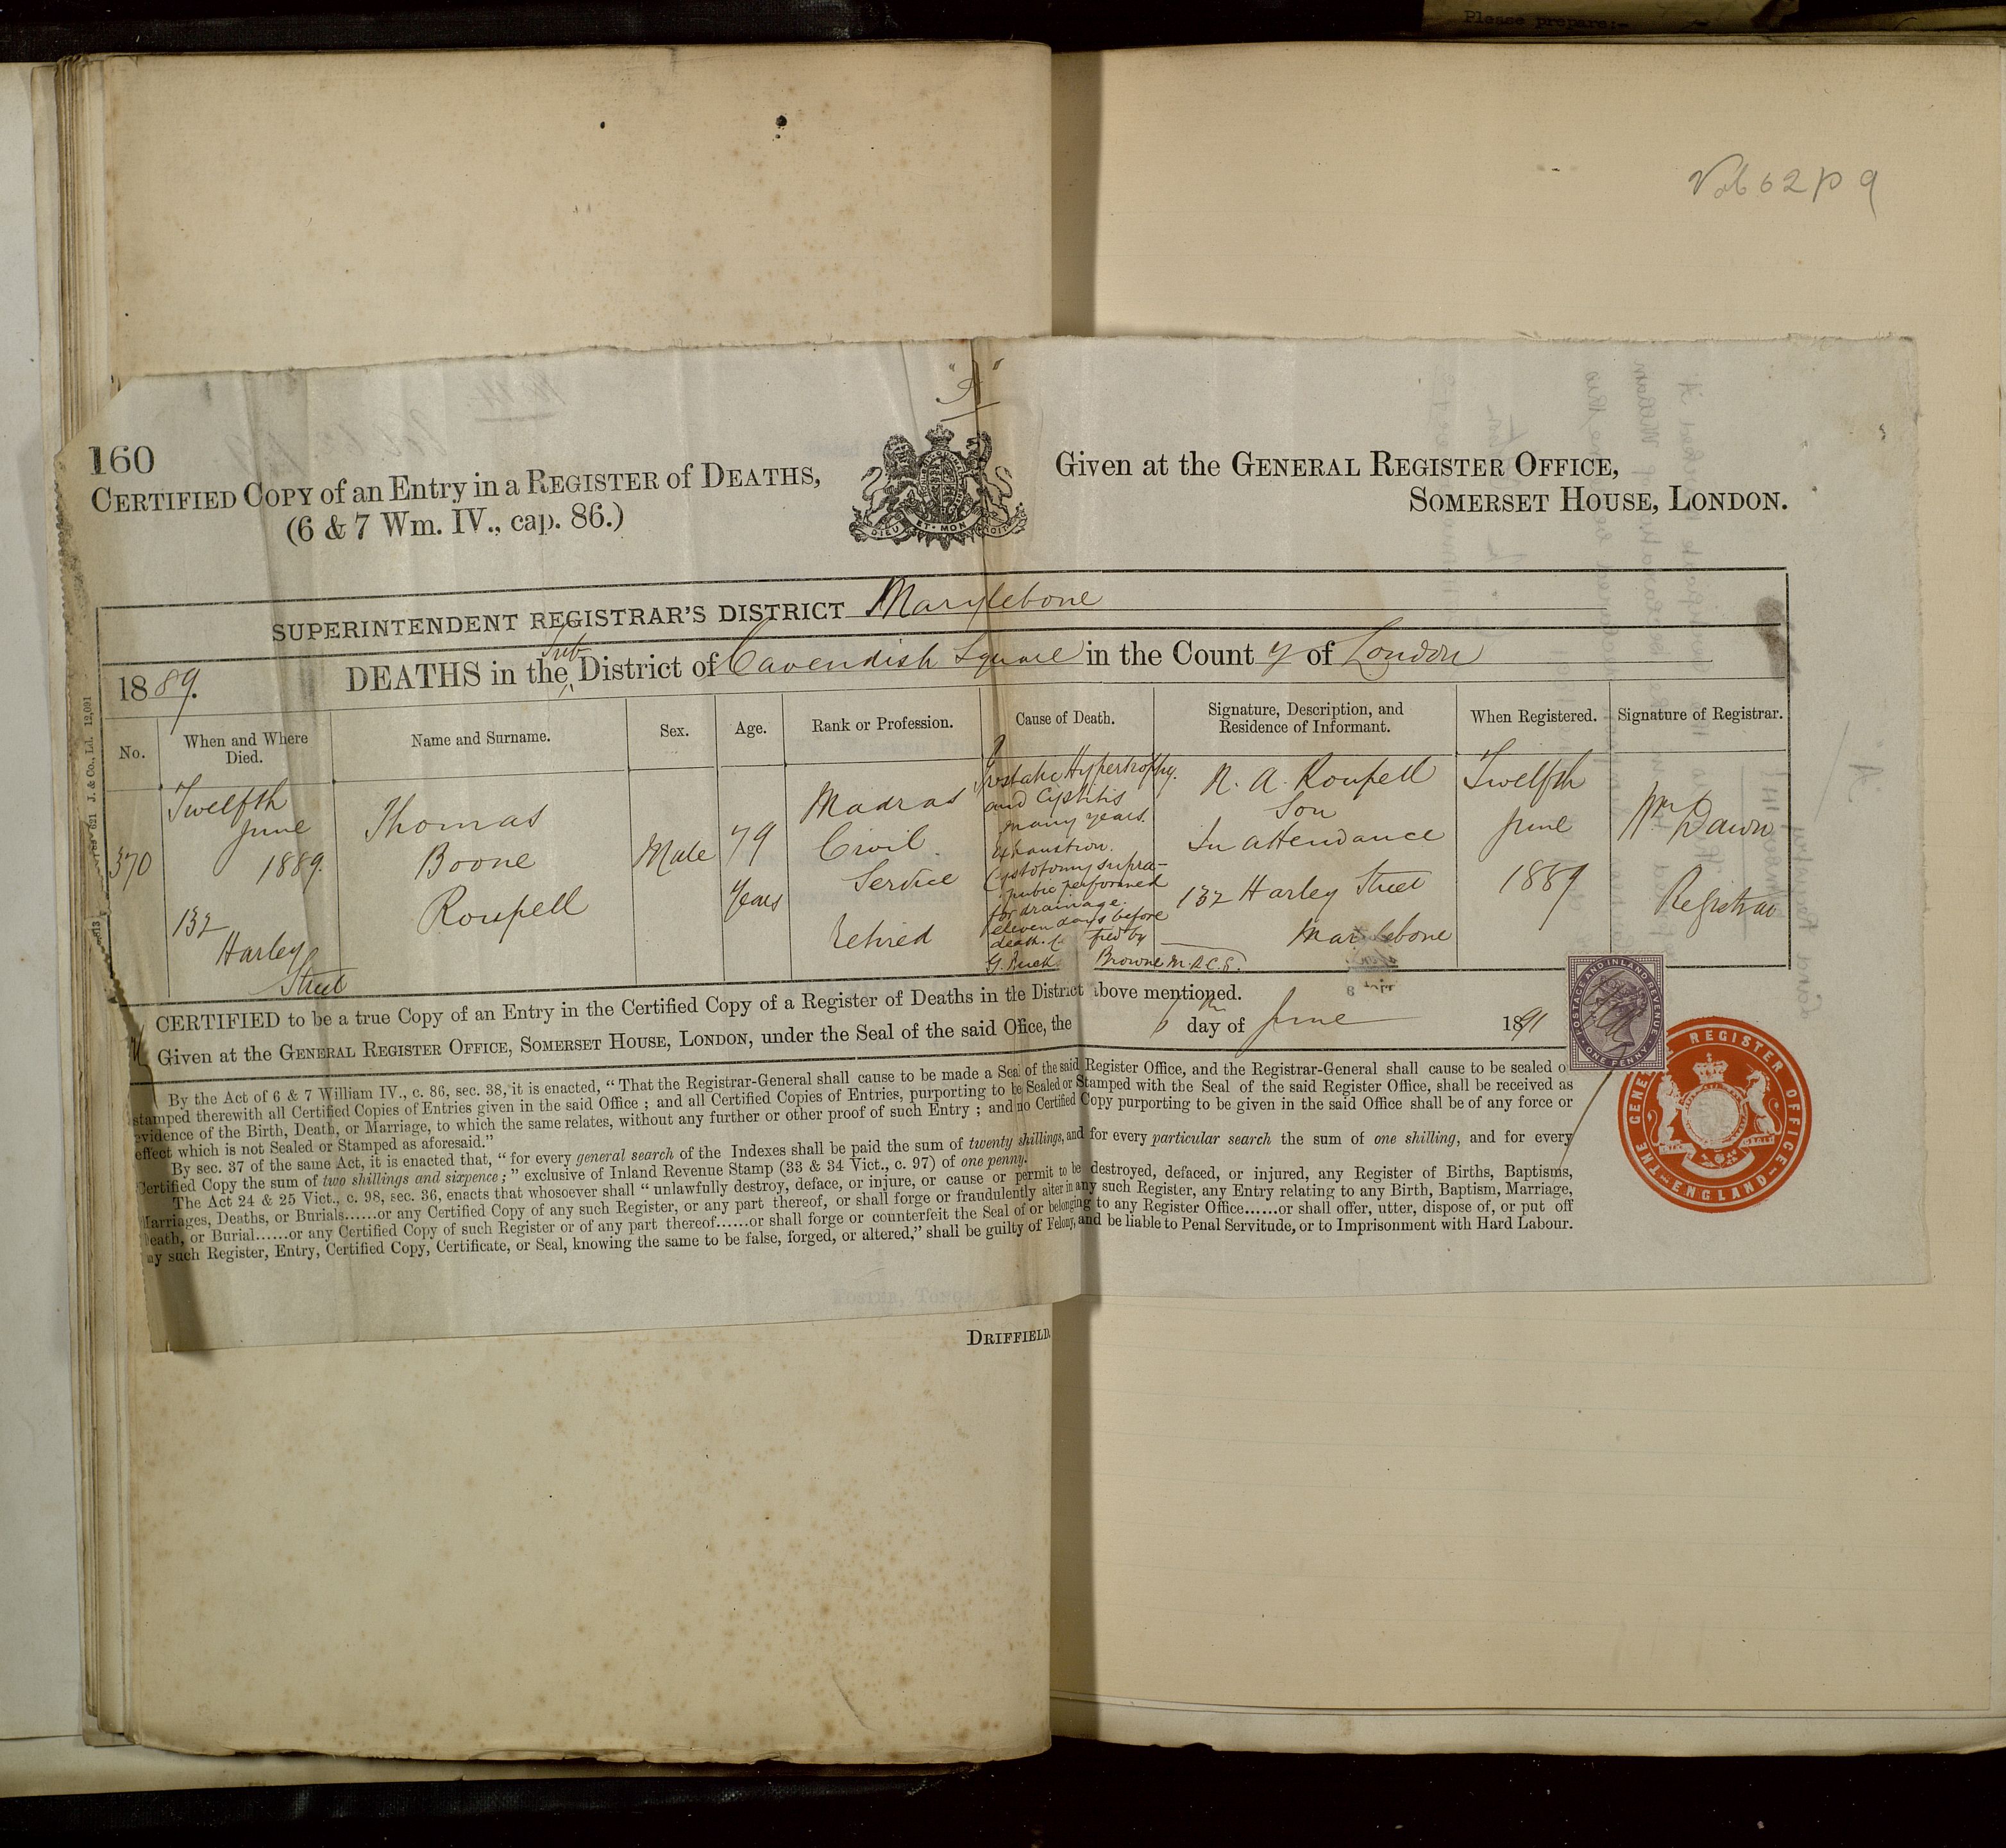 Please prepare:-
Vol 62 p 9
"A"
160
CERTIFIED COPY of an Entry in a REGISTER of DEATHS,
(6 & 7 Wm. IV., cap. 86.)
DIEU ET MON DROIT
Given at the GENERAL REGISTER OFFICE,
SOMERSET HOUSE, LONDON.
SUPERINTENDENT REGISTRAR'S DISTRICT Marylebone
1889. DEATHS in the Sub District of Cavendish Square in the County of London
No.
When and Where Died.
Name and Surname.
Sex.
Age.
Rank or Profession.
Cause of Death.
Signature, Description, and Residence of Informant.
When Registered.
Signature of Registrar.
370
Twelfth
June
1889.
132
Harley
Street
Thomas
Boone
Roupell
Male
79
Years
Madras
Civil
Service
retired
Prostatic Hypertrophy.
and Cystitis
many years.
Exhaustion.
Cystotomy supra-
pubic performed
for drainage.
eleven days before
death. fied by
G. Buck Browne M.R.C.S.
R. A. Roupell
Son
In attendance
132 Harley Street
Marylebone
Twelfth
June
1889
Wm Dawn
Registrar
CERTIFIED to be a true Copy of an Entry in the Certified Copy of a Register of Deaths in the District above mentioned.
Given at the GENERAL REGISTER OFFICE, SOMERSET HOUSE, LONDON, under the Seal of the said Office, the 6th day of June 1891
By the Act of 6 & 7 William IV., c. 86, sec. 38, it is enacted, "That the Registrar-General shall cause to be made a Seal of the said Register Office, and the Registrar-General shall cause to be sealed or
stamped therewith all Certified Copies of Entries given in the said Office; and all Certified Copies of Entries, purporting to be Sealed or Stamped with the Seal of the said Register Office, shall be received as
evidence of the Birth, Death, or Marriage, to which the same relates, without any further or other proof of such Entry; and no Certified Copy purporting to be given in the said Office shall be of any force or
effect which is not Sealed or Stamped as aforesaid."
By sec. 37 of the same Act, it is enacted that, "for every general search of the Indexes shall be paid the sum of twenty shillings, and for every particular search the sum of one shilling, and for every
Certified Copy the sum of two shillings and sixpence;" exclusive of Inland Revenue Stamp (33 & 34 Vict., c. 97) of one penny.
The Act 24 & 25 Vict., c. 98, sec. 36, enacts that whosoever shall "unlawfully destroy, deface, or injure, or cause or permit to be destroyed, defaced, or injured, any Register of Births, Baptisms,
Marriages, Deaths, or Burials......or any Certified Copy of any such Register, or any part thereof, or shall forge or fraudulently alter in any such Register, any Entry relating to any Birth, Baptism, Marriage,
Death, or Burial......or any Certified Copy of such Register or of any part thereof......or shall forge or counterfeit the Seal of or belonging to any Register Office......or shall offer, utter, dispose of, or put off
any such Register, Entry, Certified Copy, Certificate, or Seal, knowing the same to be false, forged, or altered," shall be guilty of Felony, and be liable to Penal Servitude, or to Imprisonment with Hard Labour.
POSTAGE AND INLAND REVENUE
ONE PENNY
THE GENERAL REGISTER OFFICE
ENGLAND
DRIFFIELD.